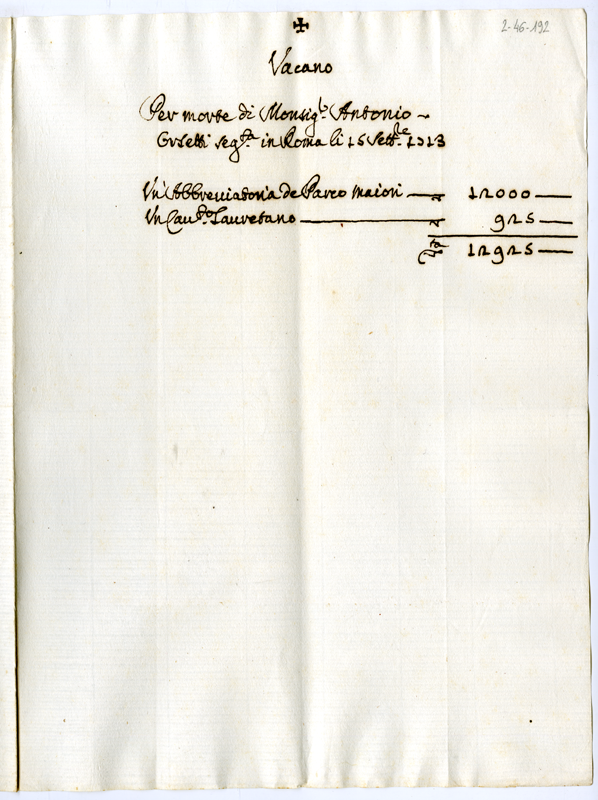 2-46-192
✠
Vacano
Per morte di Monsig.r Antonio ~
seg.ta in Roma li 15 Sett.re 1713
Un' Abbreviatoria de Parco maiori — 12000 —
Un Cau.to Lauretano — 925 —
12925 —